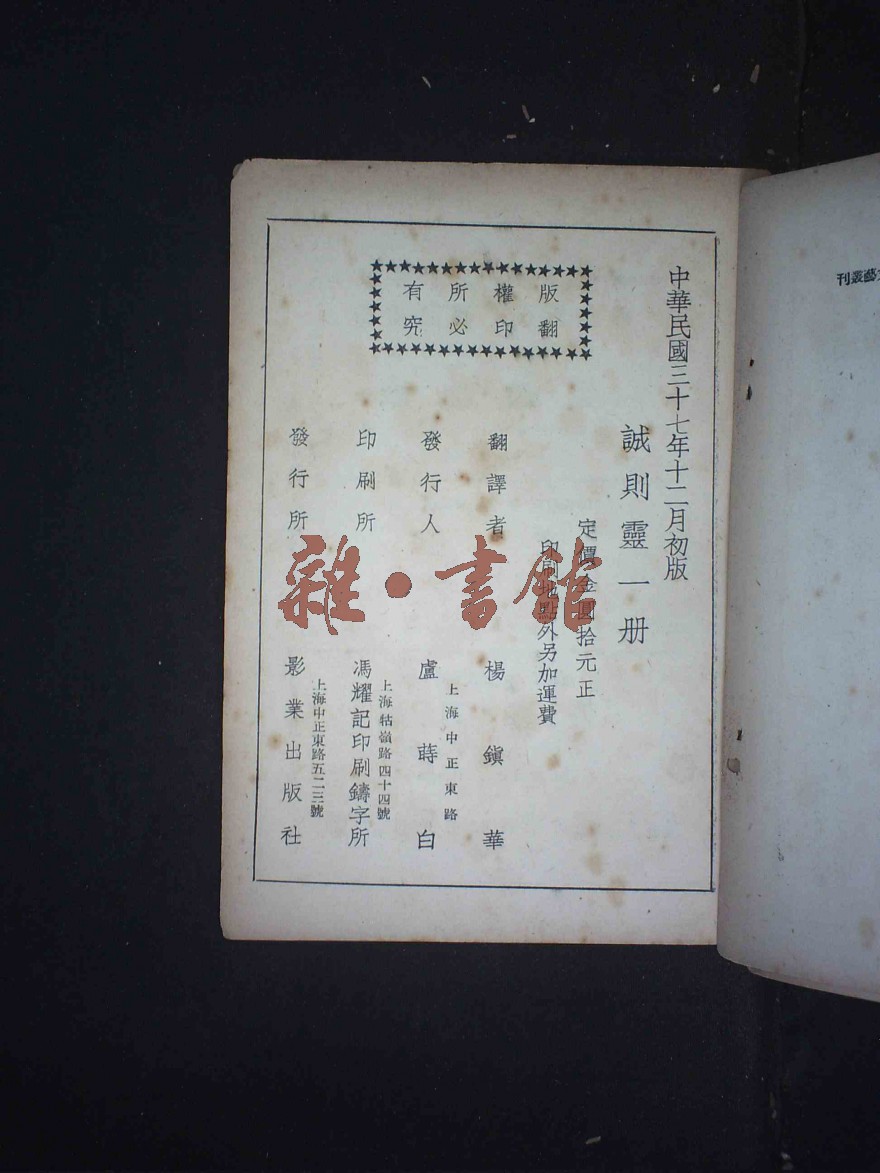 文藝叢刊
中華民國三十七年十二月初版
誠則靈一册
定價金圓拾元正
印刷地點外另加運費
版權所有
翻印必究
翻譯者 楊鎭華
發行人 盧蒔白
上海中正東路
印刷所 馮耀記印刷鑄字所
上海牯嶺路四十四號
發行所 影業出版社
上海中正東路五二三號
雜·書館